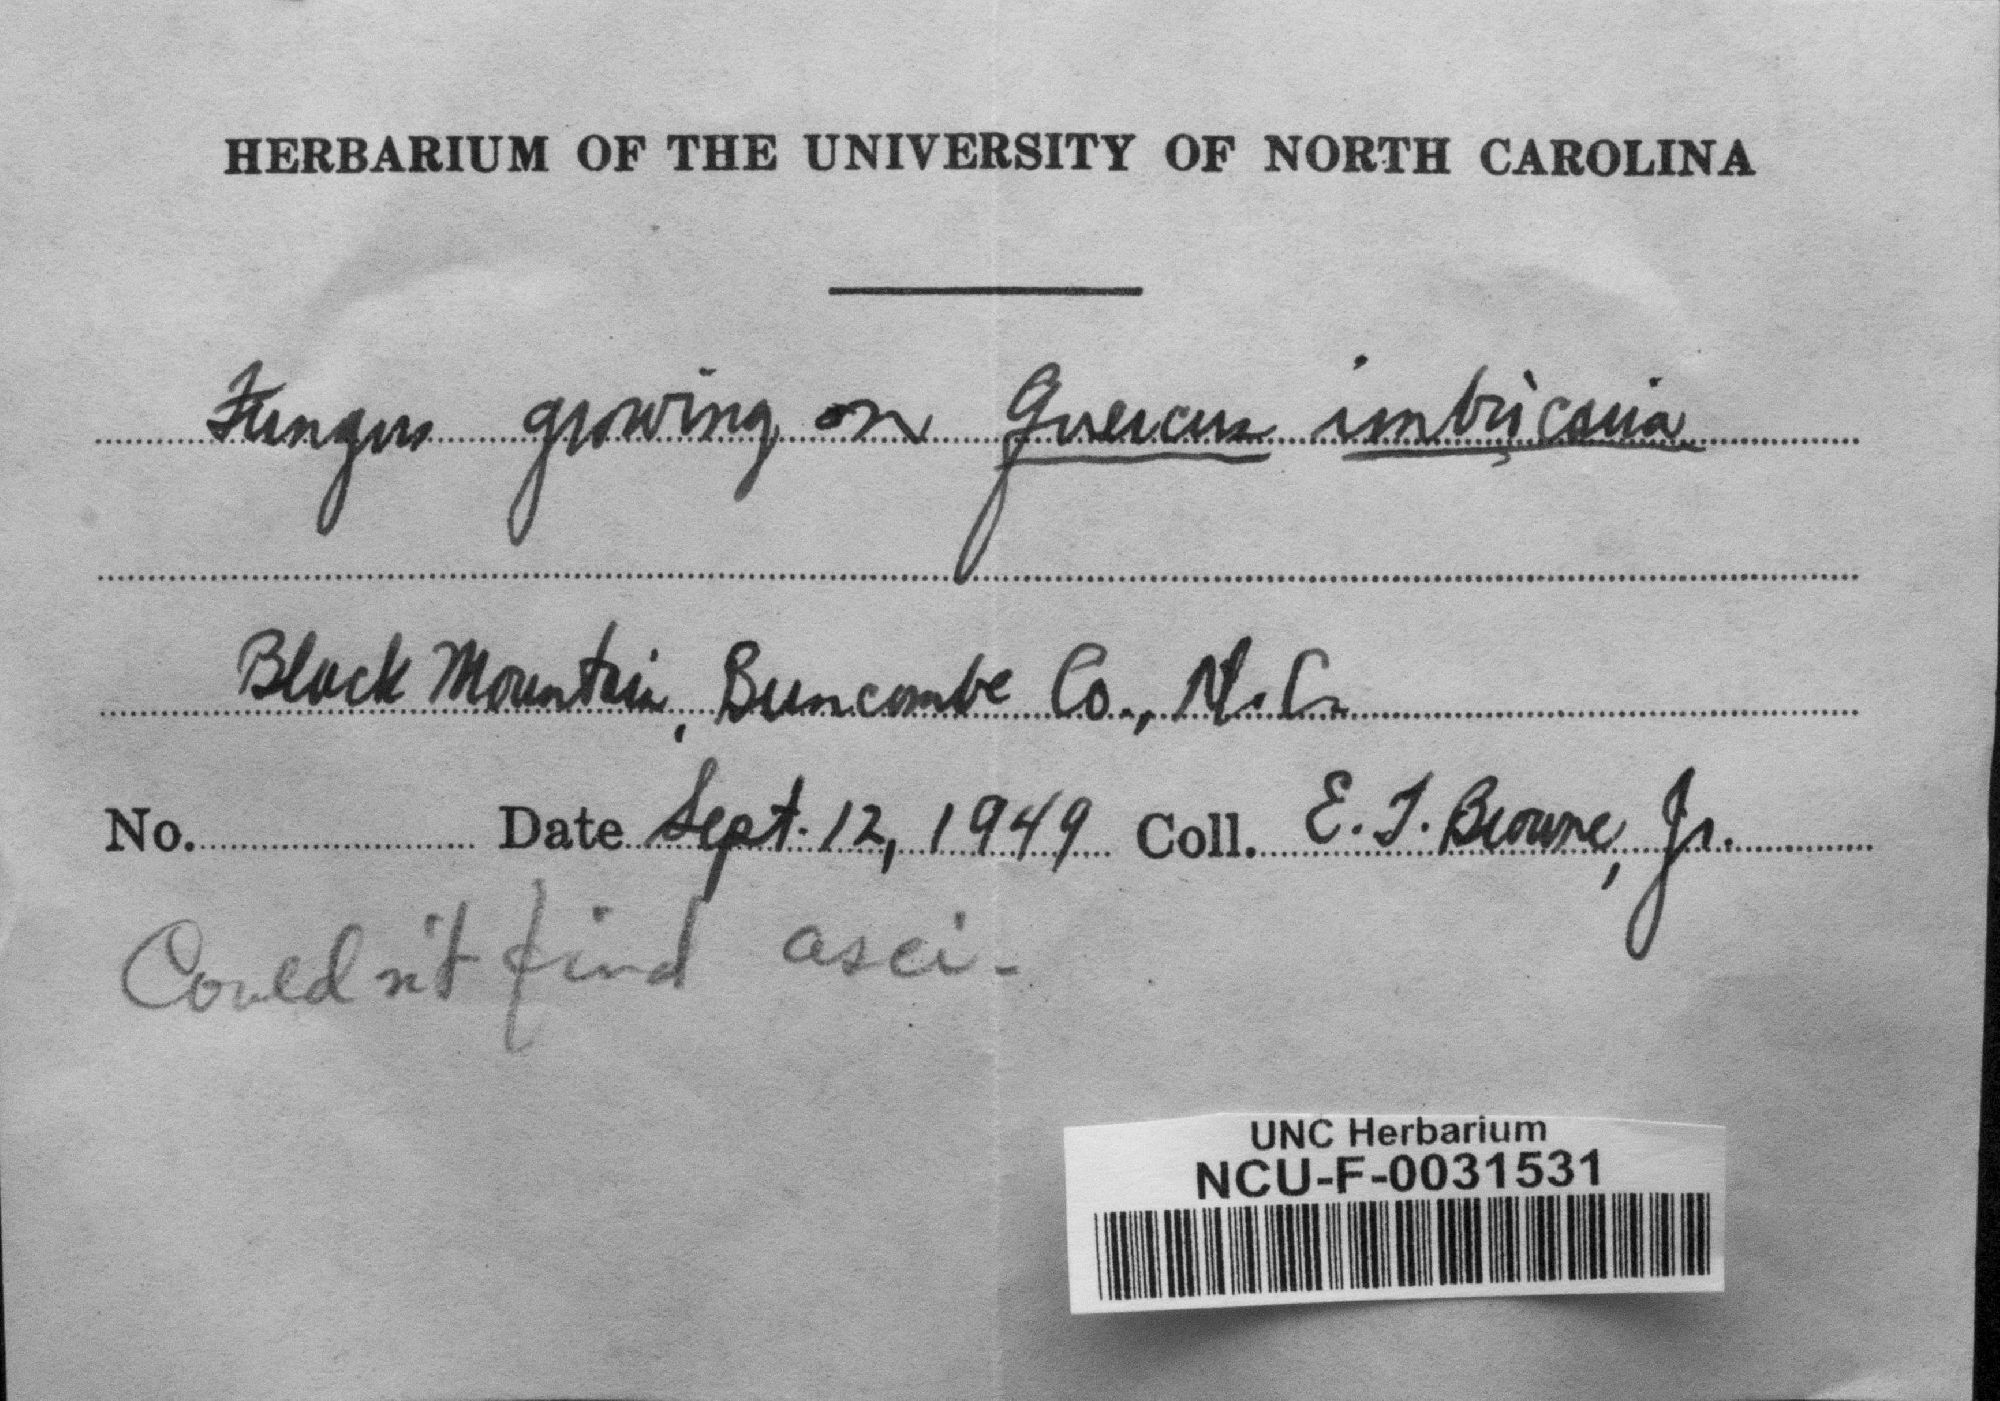 HERBARIUM OF THE UNIVERSITY OF NORTH CAROLINA
Fungus growing on Quercus imbricaria
Black Mountain, Buncombe Co., N.C.
No. Date Sept. 12, 1949 Coll. E. T. Browne, Jr.
Couldn't find asci-
UNC Herbarium
NCU-F-0031531